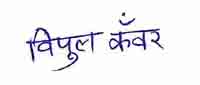 विपुल कँवर